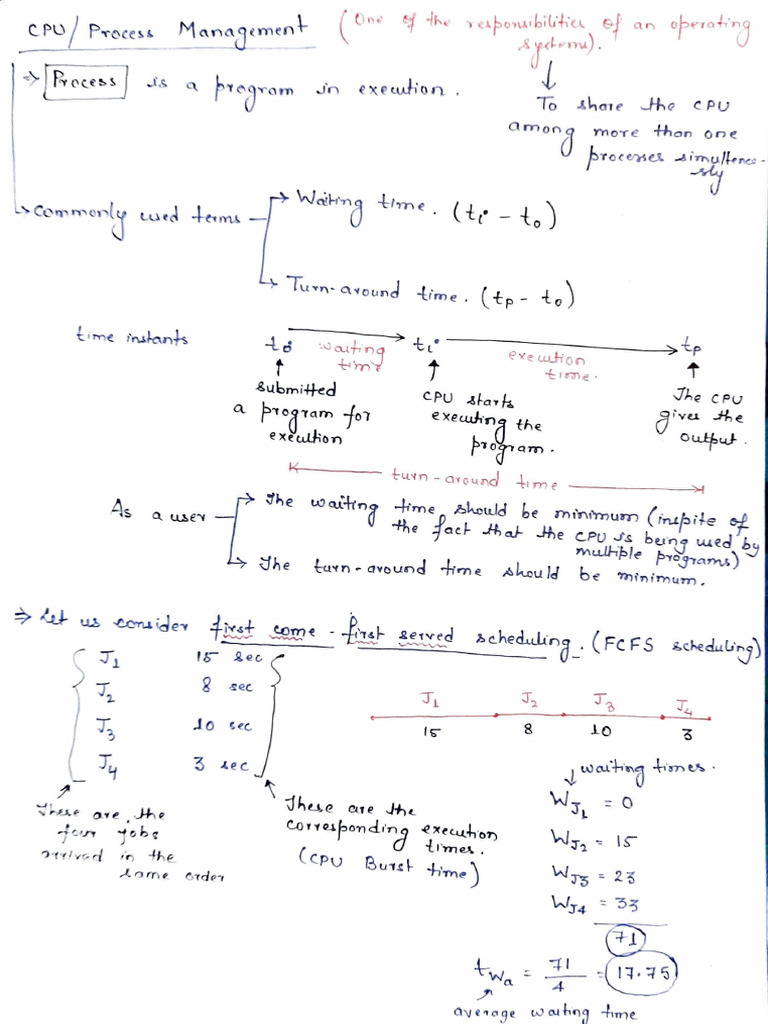 CPU/Process Management (One of the responsibilities of an operating
systems).
⇒ Process is a program in execution.
To share the CPU
among more than one
processes simultenco-
sly
Commonly used terms
Waiting time. (ti - to)
Turn-around time. (tp - to)
time instants
to waiting time ti execution time. tp
submitted
a program for
execution
CPU starts
executing the
program.
The CPU
gives the
output.
turn-around time
As a user
The waiting time should be minimum (inspite of
the fact that the CPU is being used by
multiple programs)
The turn-around time should be minimum.
⇒ Let us consider first come - first served scheduling. (FCFS scheduling)
J1 15 sec
J2 8 sec
J3 10 sec
J4 3 sec
J1 J2 J3 J4
15 8 10 3
These are the
four jobs
arrived in the
same order
These are the
corresponding execution
times.
(CPU Burst time)
waiting times.
WJ1 = 0
WJ2 = 15
WJ3 = 23
WJ4 = 33
71
tWa = 71/4 = 17.75
average waiting time